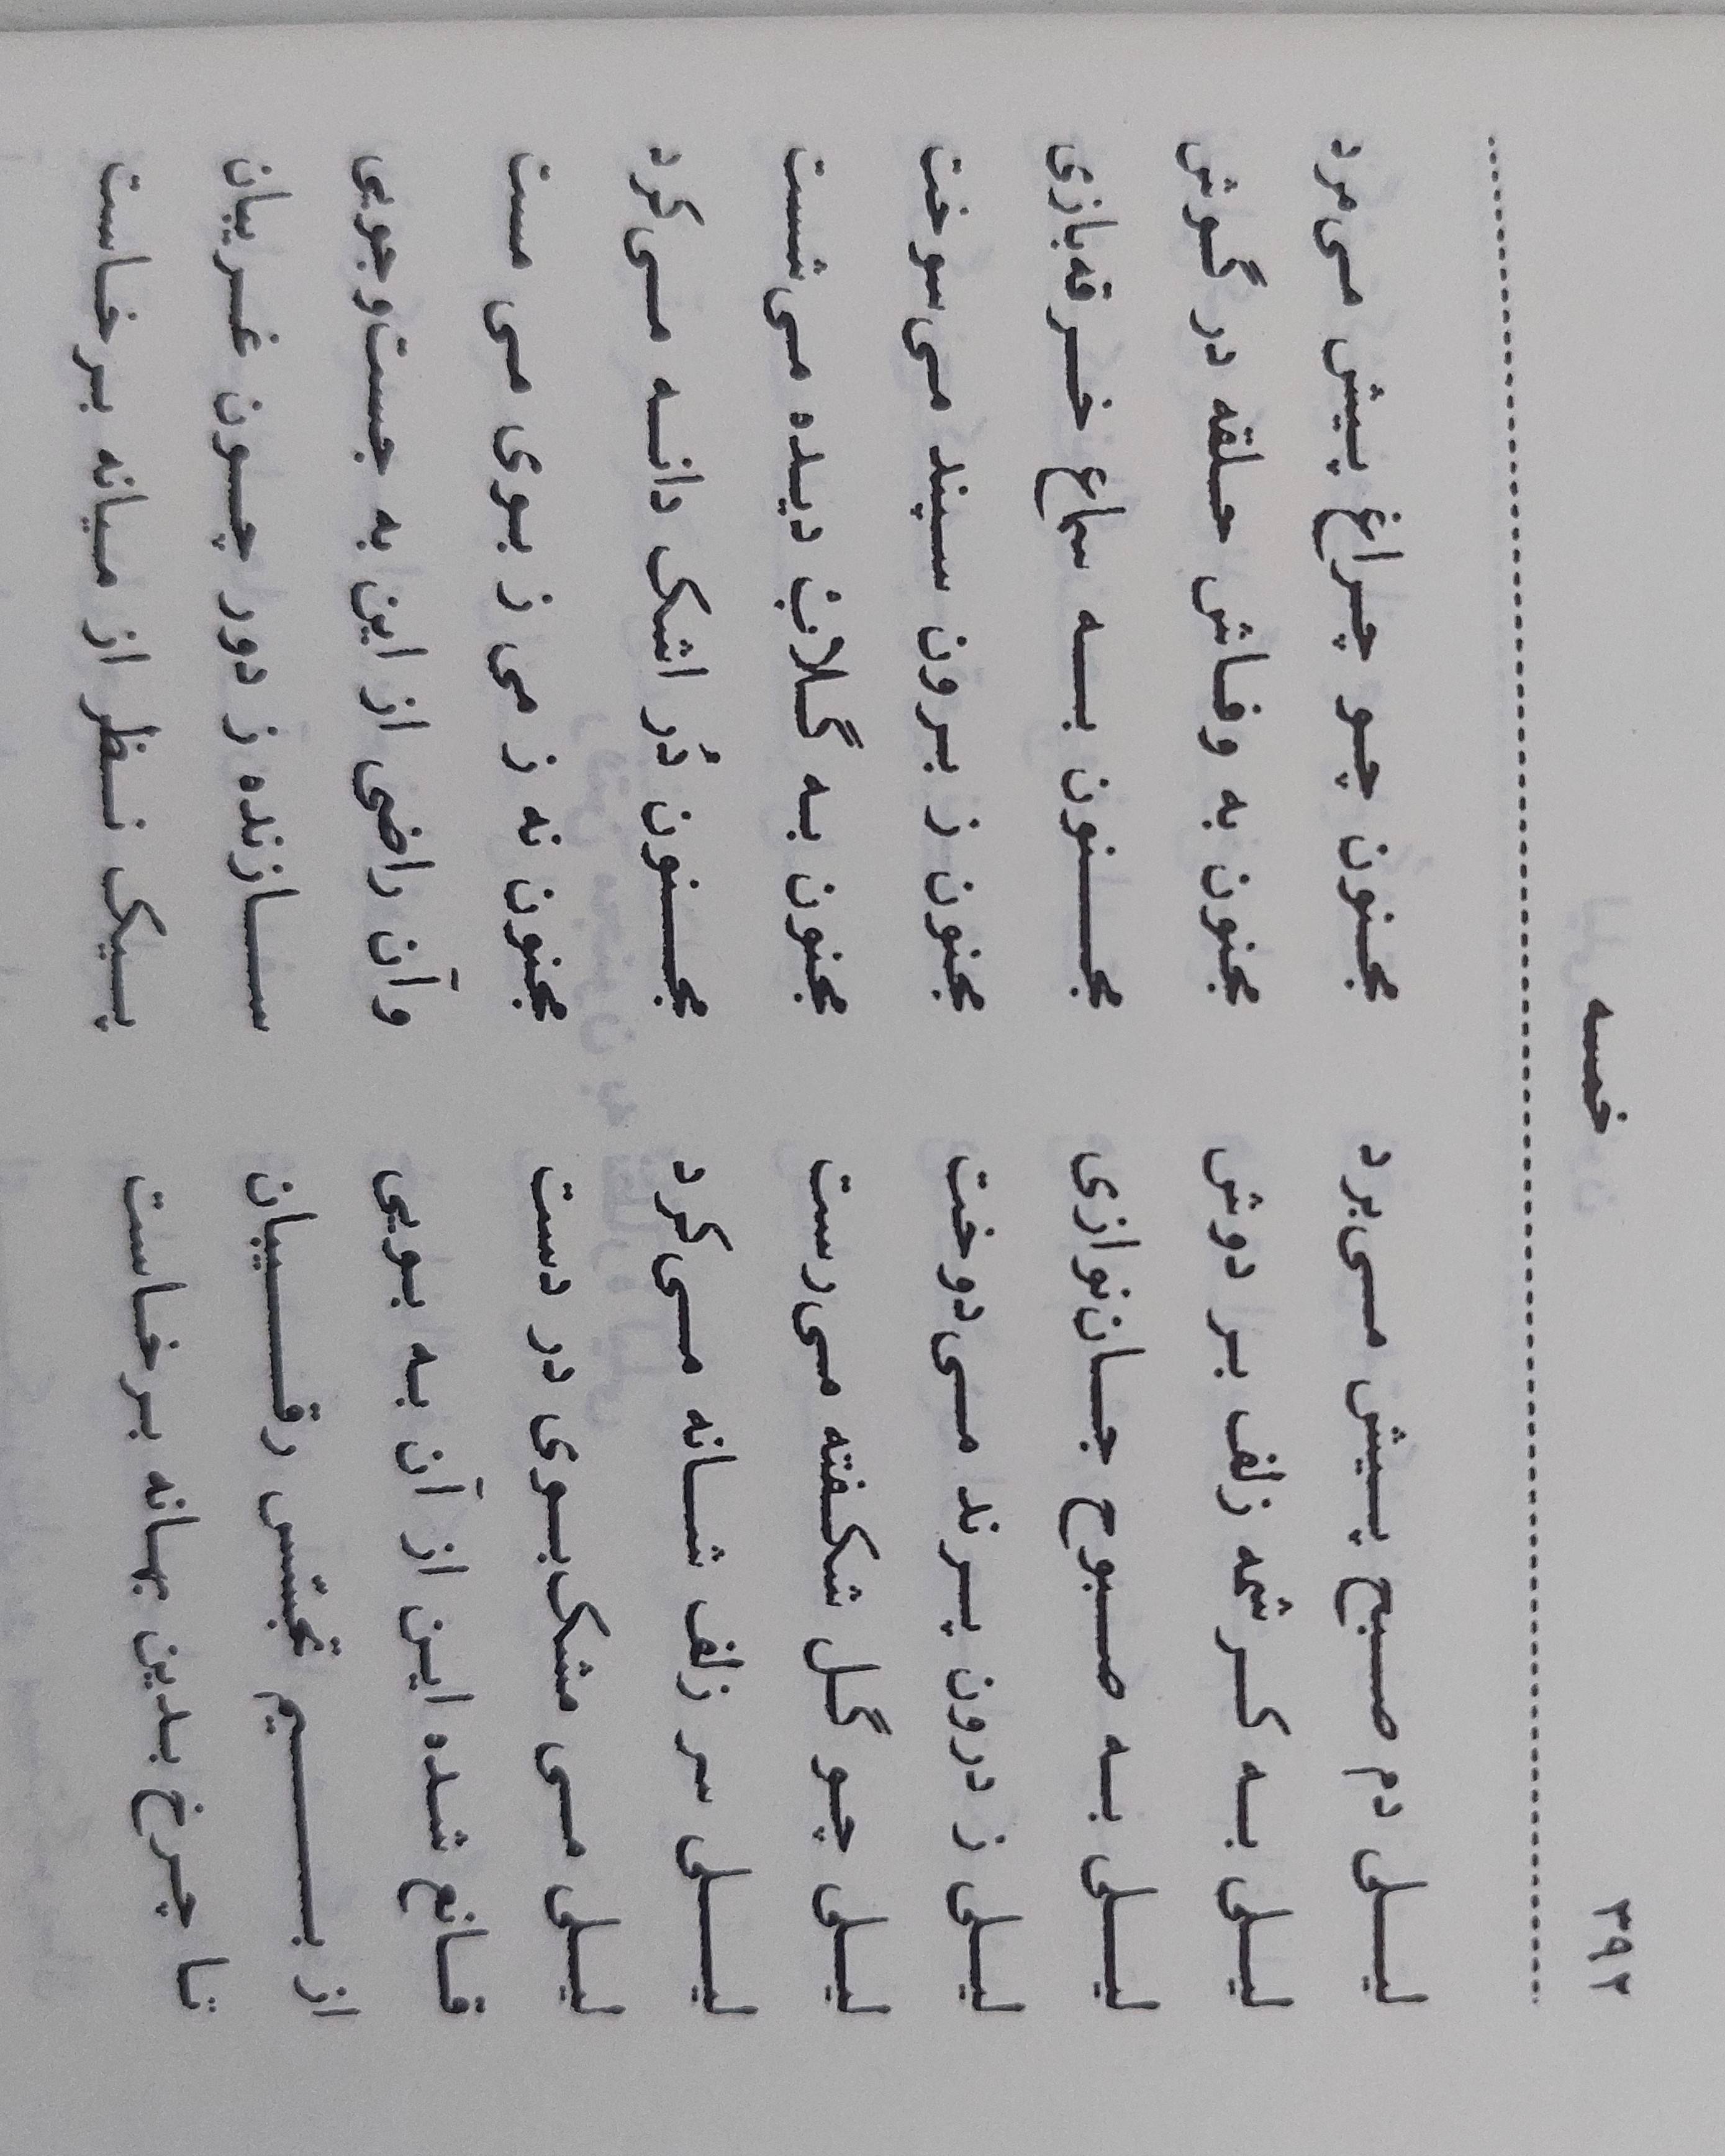 ۳۹۲ خمسه
لیلی دم صبح پیش می‌برد مجنون چو چراغ پیش می‌مرد
لیلی به کرشمه زلف بر دوش مجنون به وفاش حلقه در گوش
لیلی به صبوح جان‌نوازی مجنون به سماع خرقه‌بازی
لیلی ز درون پرند می‌دوخت مجنون ز برون سپند می‌سوخت
لیلی چو گل شکفته می‌رست مجنون به گلاب دیده می‌شست
لیلی سر زلف شانه می‌کرد مجنون دُر اشک دانه می‌کرد
لیلی می مشک‌بوی در دست مجنون نه ز می ز بوی می مست
قانع شده این از آن به بویی وآن راضی از این به جست‌وجویی
از بیم تجسّس رقیبان سازنده ز دور چون غریبان
تا چرخ بدین بهانه برخاست پیک نظر از میانه برخاست